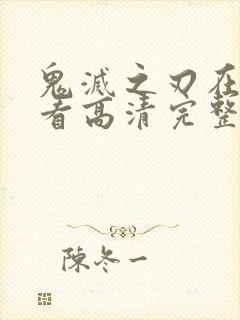 鬼滅之刃在
看高清完整
陳冬一